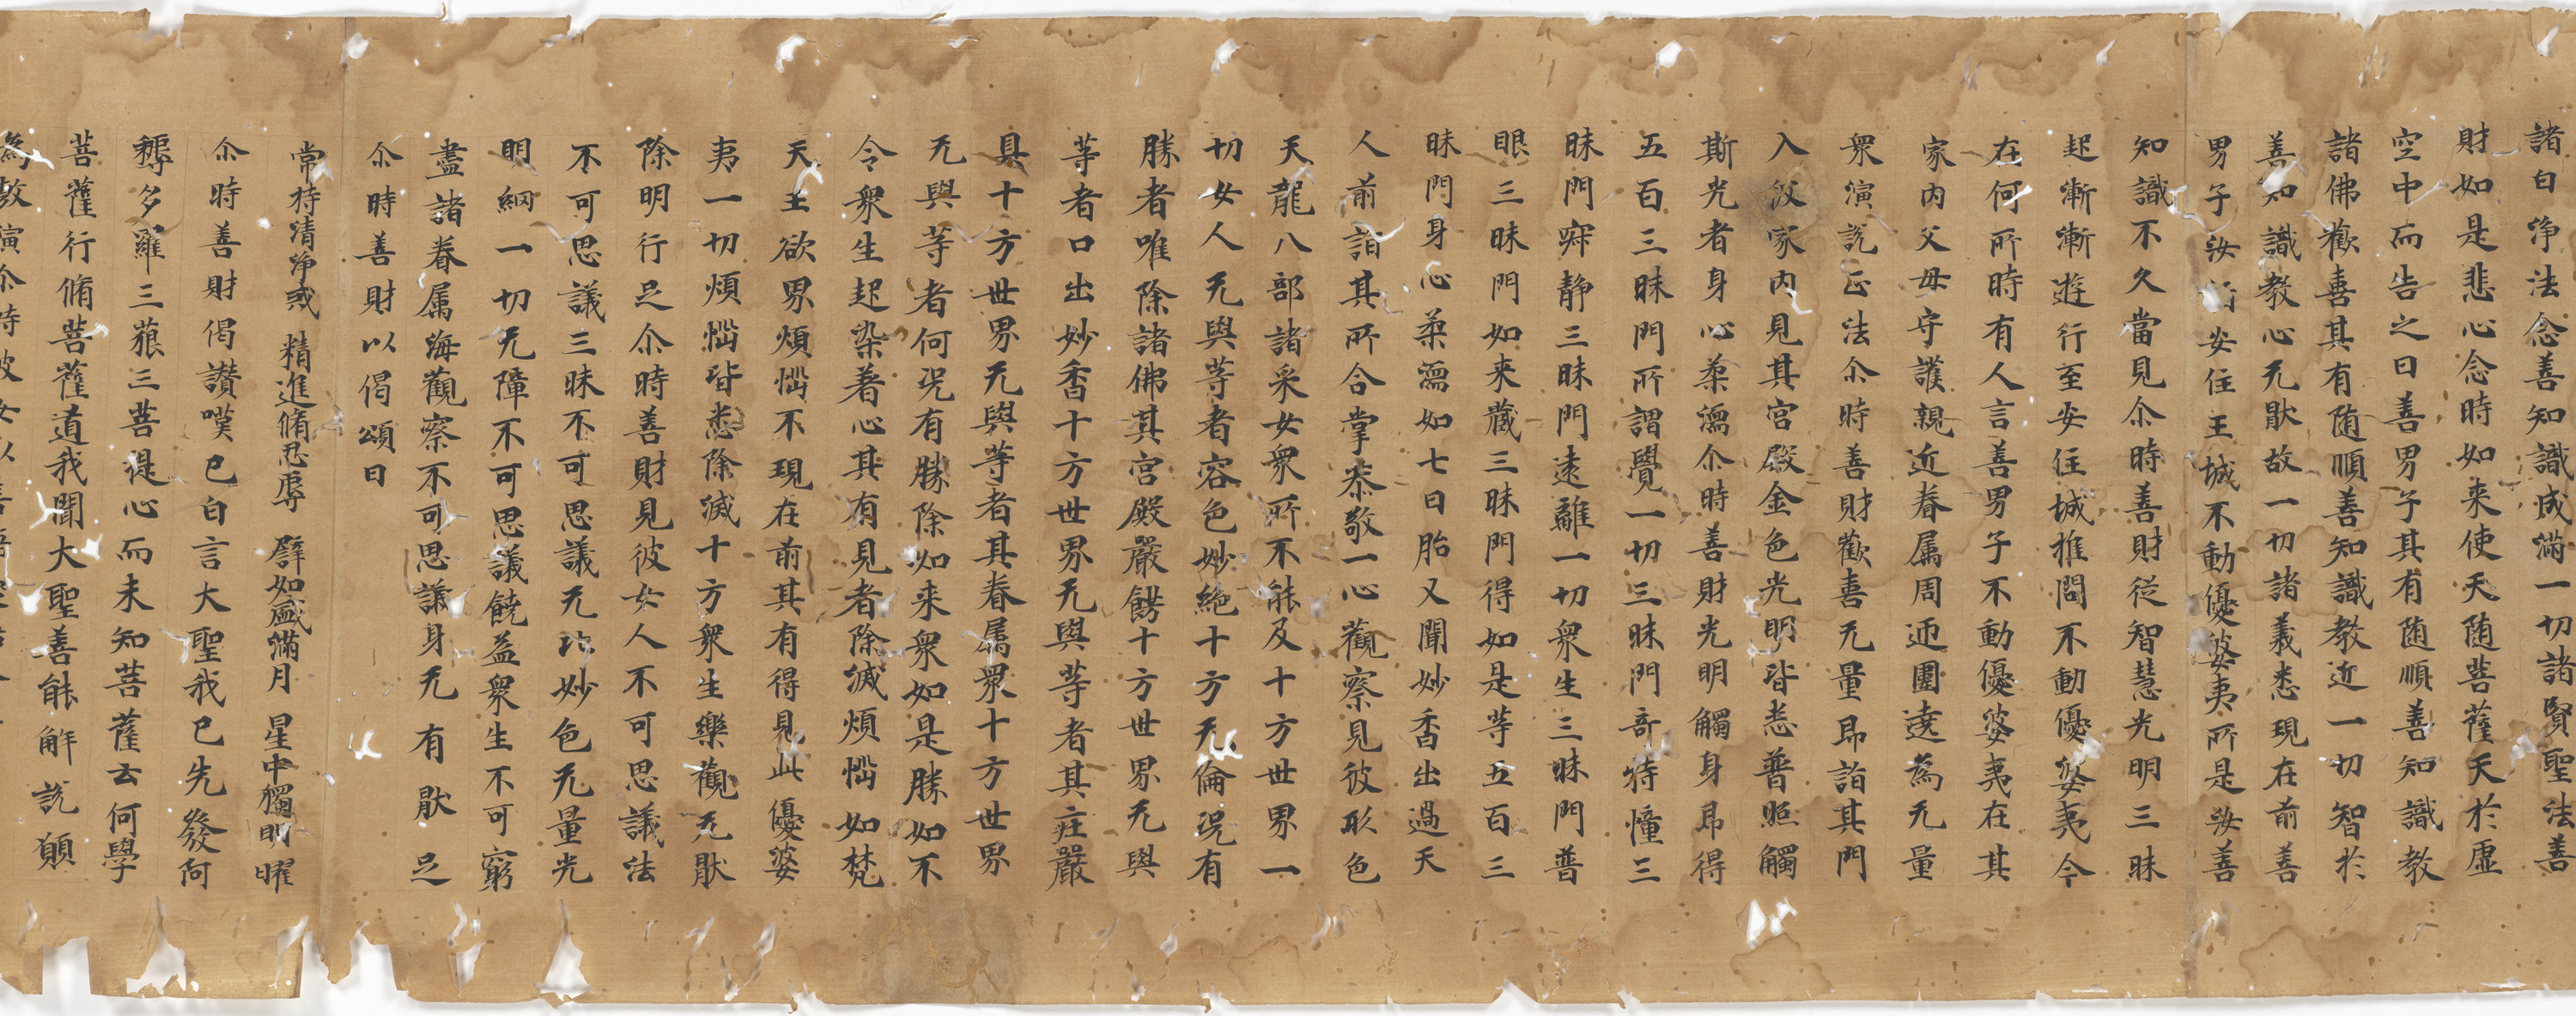 諸白淨法念善知識成滿一切諸賢聖法善
財如是悲心念時如来使天随菩薩天於虛
空中而告之曰善男子其有随順善知識教
諸佛歡喜其有随順善知識教近一切智於
善知識教心无猒故一切諸義悉現在前善
男子汝詣安住王城不動優婆夷所是汝善
知識不久當見尒時善財従智慧光明三昧
起漸漸遊行至安住城推問不動優婆夷今
在何所時有人言善男子不動優婆夷在其
家内父母守護親近眷属周迊圍遶為无量
衆演說正法尒時善財歡喜无量即詣其門
入彼家内見其宮殿金色光明皆悉普照觸
斯光者身心柔濡尒時善財光明觸身即得
五百三昧門所謂覺一切三昧門奇特憧三
昧門寂静三昧門遠離一切衆生三昧門普
眼三昧門如来蔵三昧門得如是等五百三
昧門身心柔濡如七日胎又聞妙香出過天
人前詣其所合掌恭敬一心觀察見彼形色
天龍八部諸采女衆所不能及十方世界一
切女人无與等者容色妙絶十方天倫况有
勝者唯除諸佛其宮殿嚴餝十方世界无與
等者口出妙香十方世界无與等者其莊嚴
具十方世界无與等者其眷属衆十方世界
无與等者何况有勝除如来衆如是勝如不
令衆生起染著心其有見者除滅煩惱如梵
天王欲界煩惱不現在前其有得見此優婆
夷一切煩惱皆悉除滅十方衆生樂觀无猒
除明行足尒時善財見彼女人不可思議法
不可思議三昧不可思議无比妙色无量光
明網一切无障不可思議饒益衆生不可窮
盡諸眷属海觀察不可思議身无有猒足
尒時善財以偈頌曰
常持清淨戒　精進脩忍辱　譬如盛滿月　星中獨明曜
尒時善財偈讃嘆已白言大聖我已先發阿
耨多羅三藐三菩提心而未知菩薩云何學
菩薩行脩菩薩道我聞大聖善能解說願
為敷演尒時彼女以